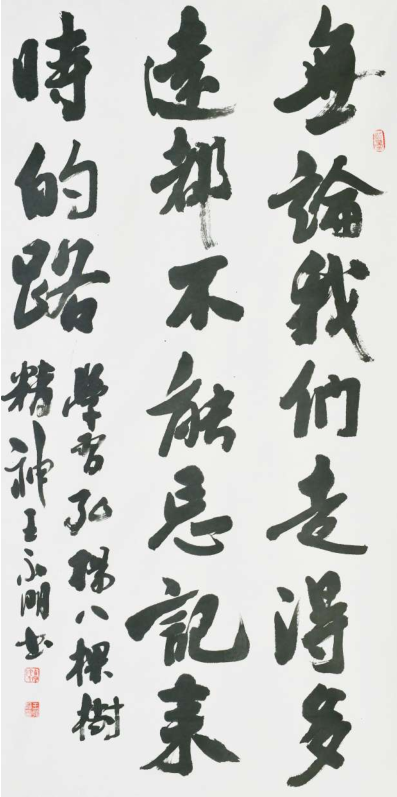 無論我們走得多
遠都不能忘記来
時的路
學習弘揚八棵樹
精神王永明書